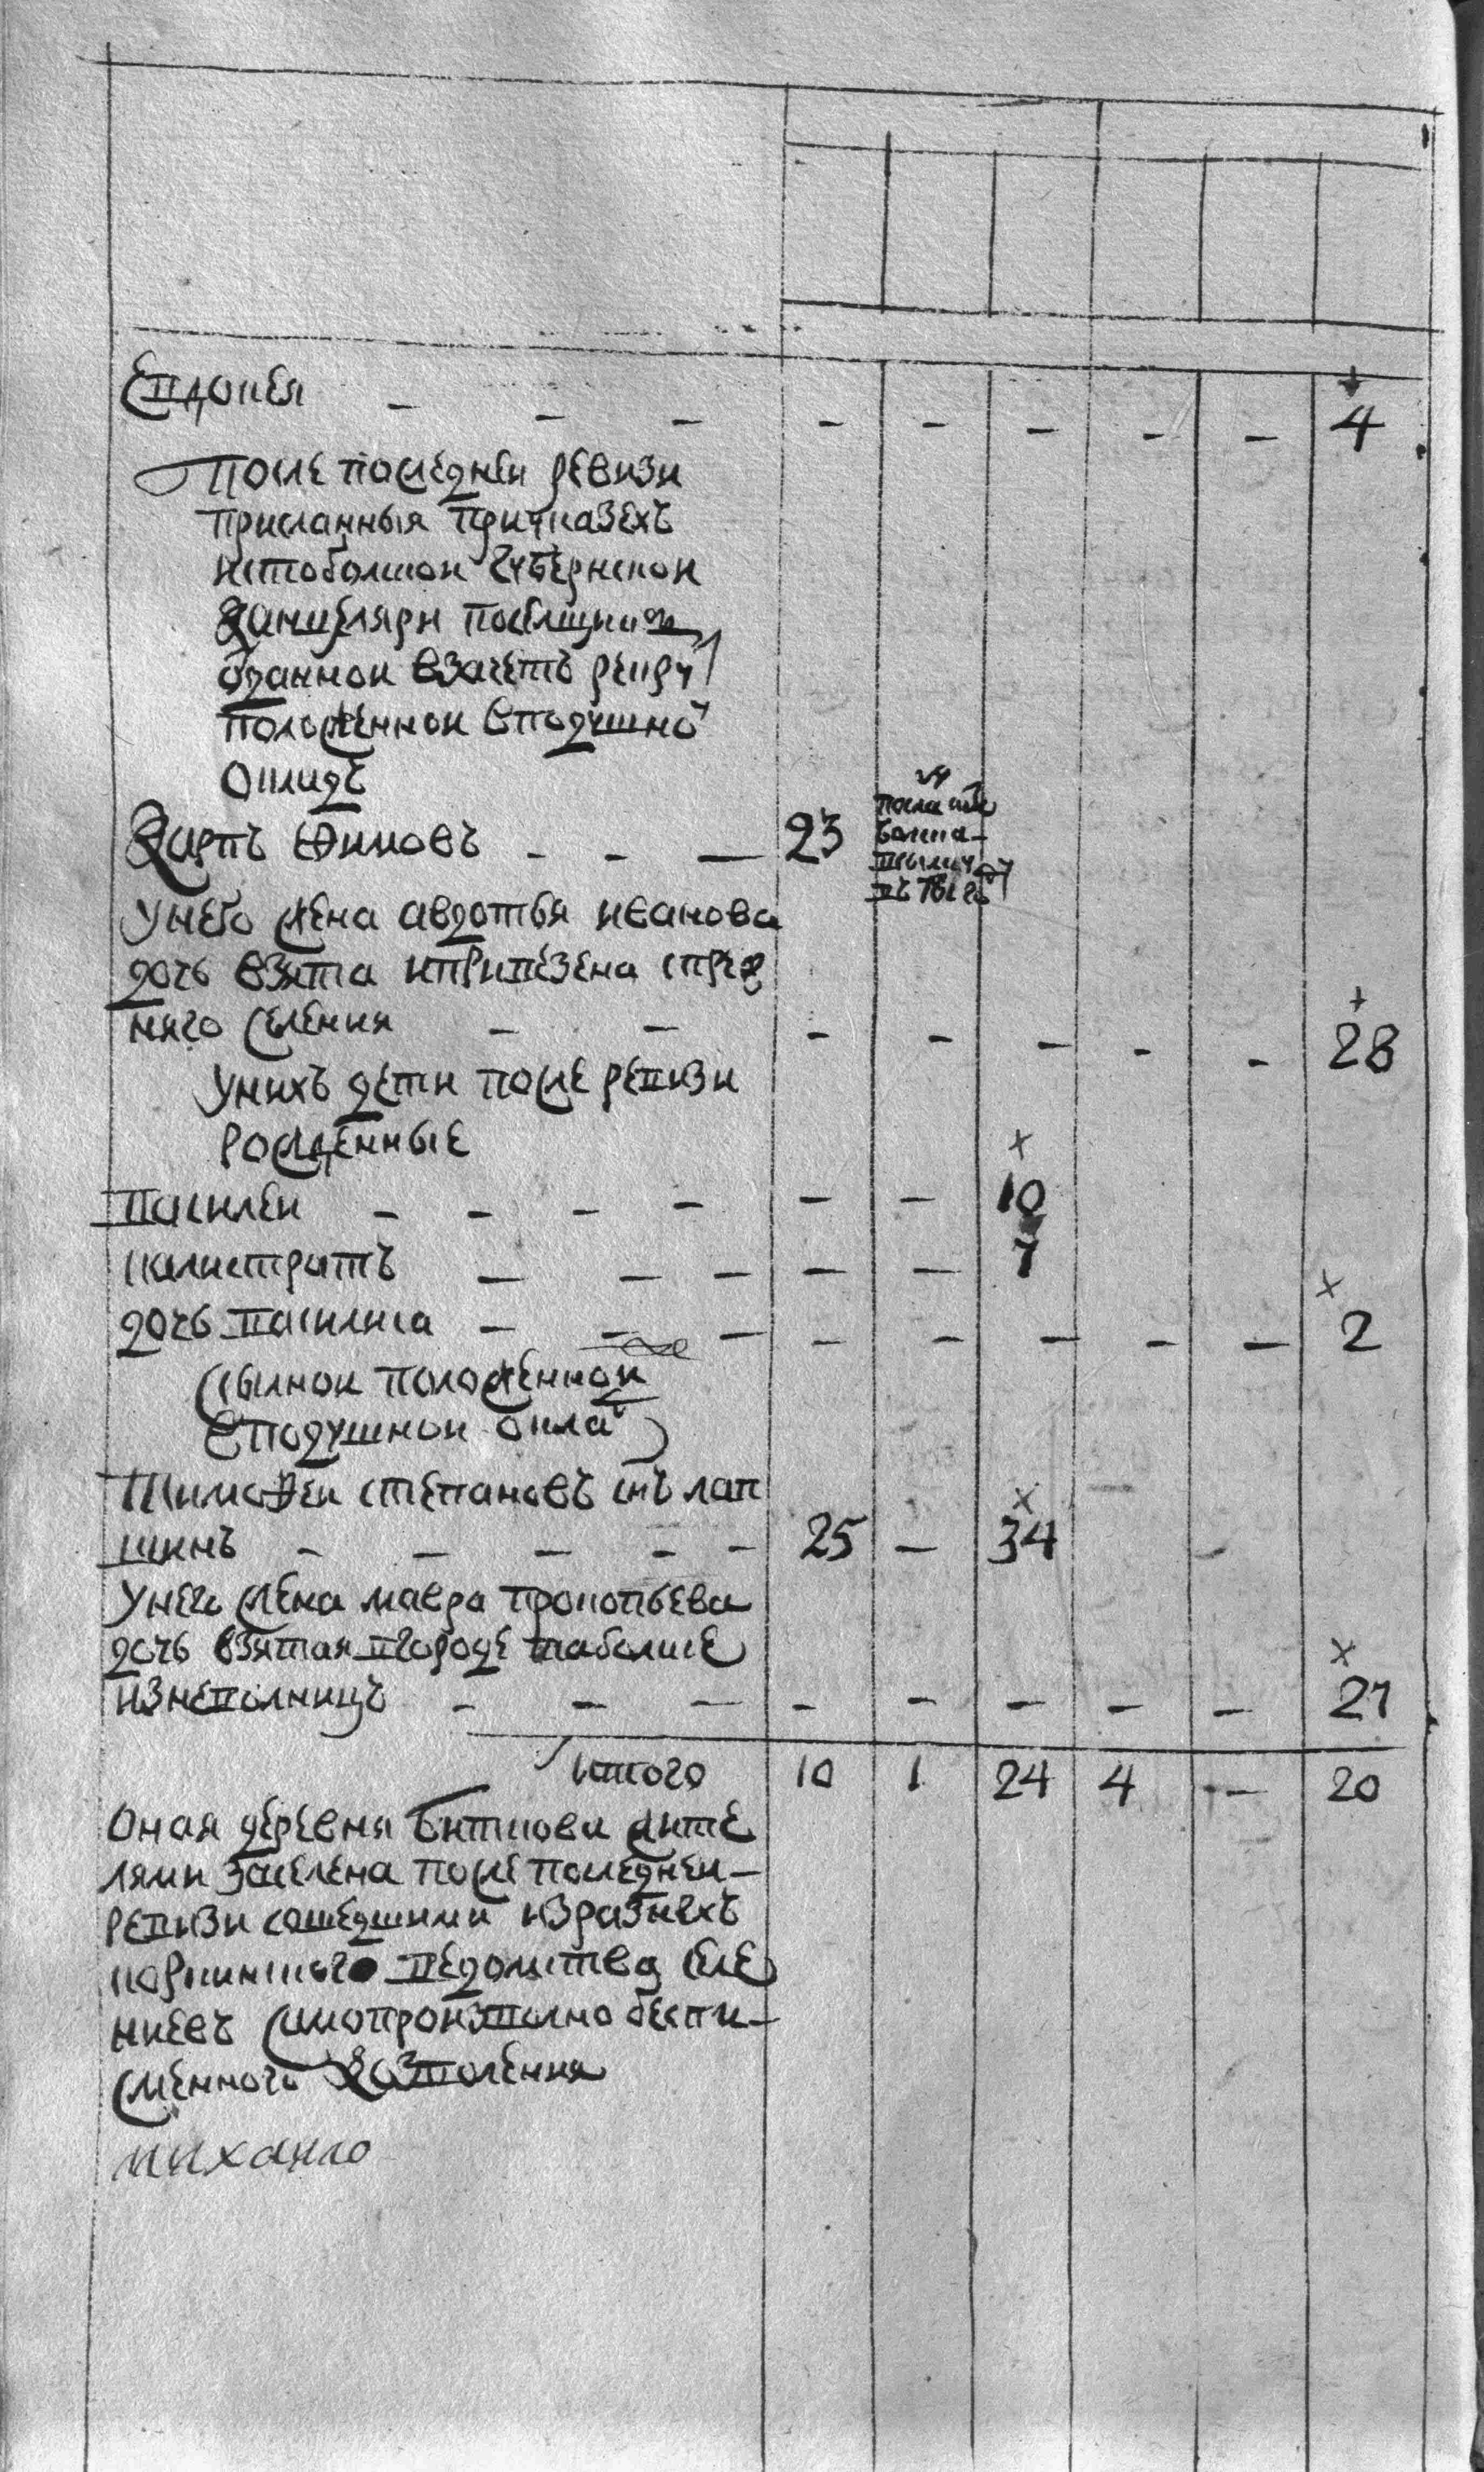 Евдокея - - - - - - - - 4
После последней ревизи
присланныя при указехъ
ис тобольской губернской
канцеляри посельщики
зданной взачетъ рекру
положенной вподушно
окладъ
Карпъ Ѳиновъ - - - 23
Унего жена авдотья иванова
дочь взята ипривезена спреж
няго селения - - - - - - - 28
Унихъ дети после ревизи
рожденные
василей - - - - - - 10
калистратъ - - - - - 7
дочь василиса - - - - - - - - 2
ссылной положенной
вподушной окла
Тимоѳей степановъ снъ лап
шинъ - - - - - 25 - 34
Унего жена мавра прокопьева
дочь взятая вгороде таболске
изневолницъ - - - - - - - - 27
итого 10 1 24 4 - 20
Оная деревня Биткова жите
лями заселена после последней
ревизи сошедшими изразныхъ
каркинского ведомства селе
ниевъ самопроизволно беспи
сменного дозволения
михаило